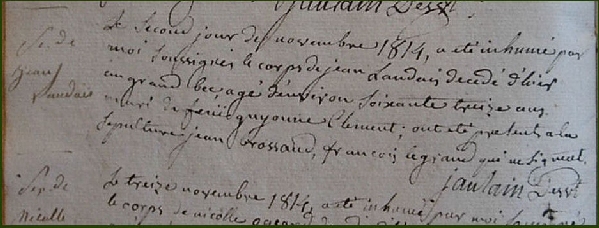 jaulain Desst.
Sep. de
jean
Landais
Le second jour de novembre 1814, a été inhumé par
moi soussigné le corps de jean Landais decedé d'hier
au grand bec agé d'environ soixante treize ans
mari de feüe guyonne Clement; ont été presents a la
sepulture jean brossaud, françois legrand qui ne signent.
jaulain Desst.
Sep. de
Nicolle
Le treize novembre 1814, a été inhumé par moi soussigné
le corps de nicolle